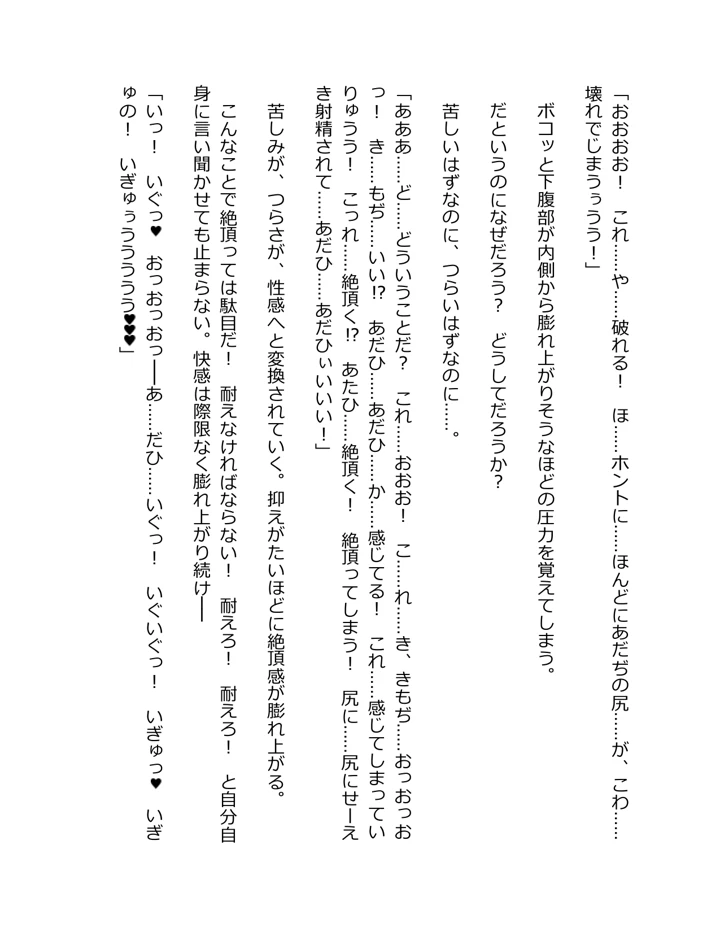 「おおおお！　これ……や……破れる！　ほ……ホントに……ほんどにあだぢの尻……が、こわ……
壊れでじまうぅうう！」
ボコッと下腹部が内側から膨れ上がりそうなほどの圧力を覚えてしまう。
だというのになぜだろう？　どうしてだろうか？
苦しいはずなのに、つらいはずなのに……。
「あああ……ど……どういうことだ？　これ……おおお！　こ……れ……き、きもぢ……おっおっお
っ！　き……もぢ……いい!?　あだひ……あだひ……か……感じてる！　これ……感じてしまってい
りゅうう！　こっれ……絶頂く!?　あたひ……絶頂く！　絶頂ってしまう！　尻に……尻にせーえ
き射精されて……あだひ……あだひぃいいい！」
苦しみが、つらさが、性感へと変換されていく。抑えがたいほどに絶頂感が膨れ上がる。
こんなことで絶頂っては駄目だ！　耐えなければならない！　耐えろ！　耐えろ！　と自分自
身に言い聞かせても止まらない。快感は際限なく膨れ上がり続け――
「いっ！　いぐっ♥　おっおっおっ――あ……だひ……いぐっ！　いぐいぐっ！　いぎゅっ♥　いぎ
ゅの！　いぎゅぅううううう♥♥♥」